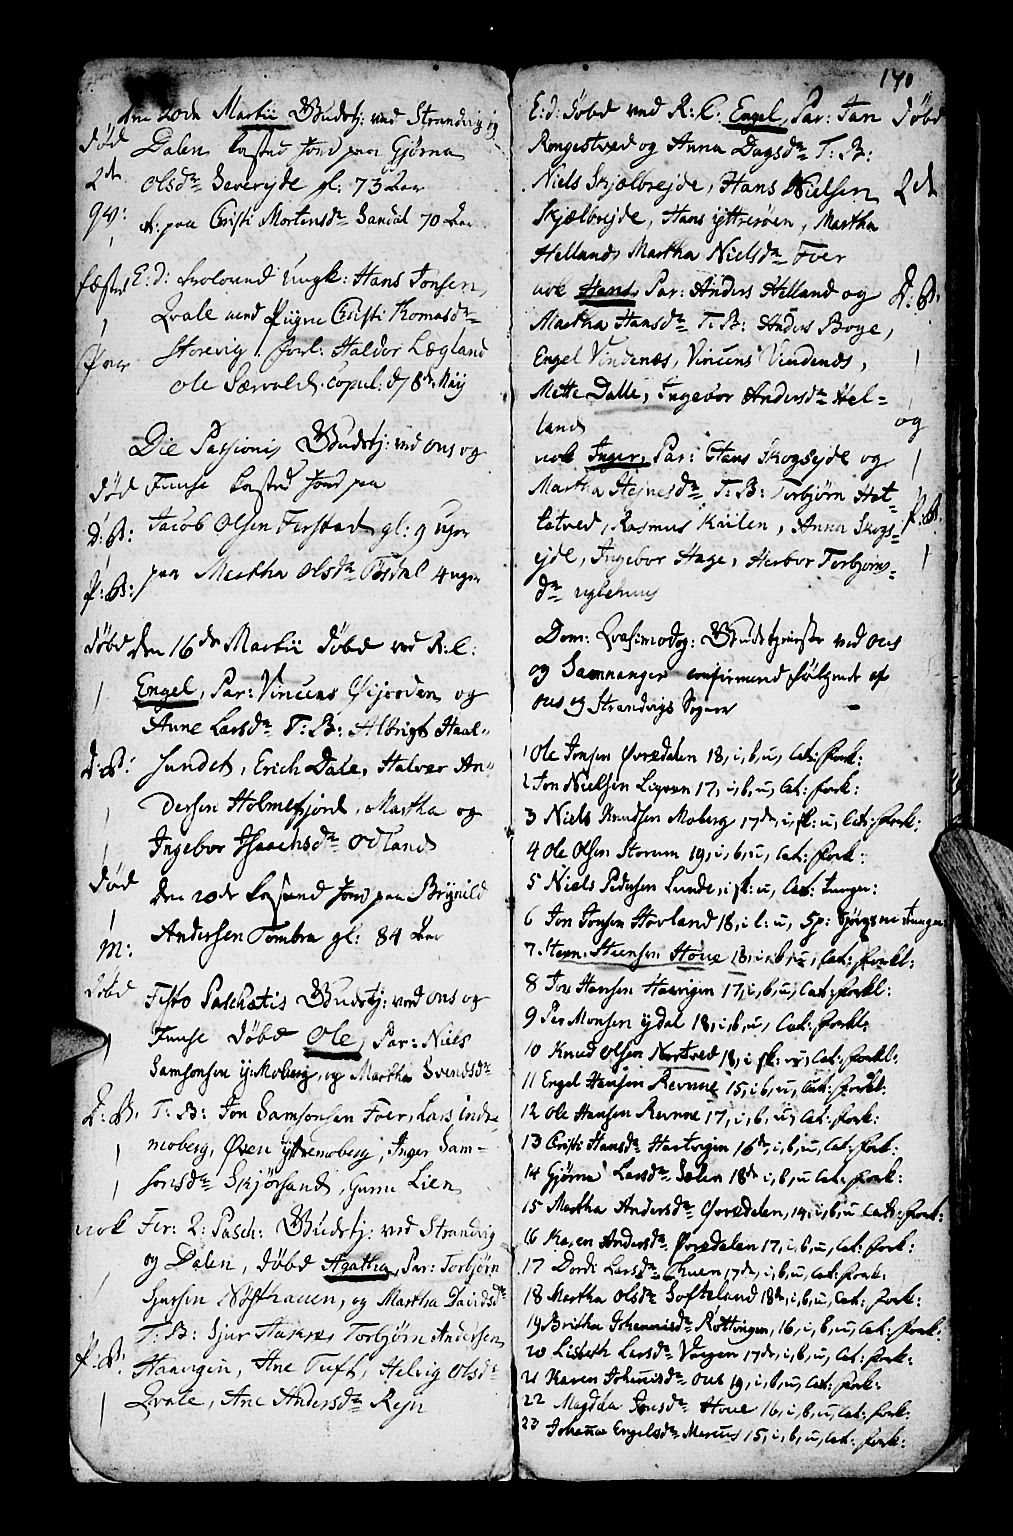 den 20de Martii Gudstj: ved Strandvig og
død Dalen kasted Jord paa Gjørna
2de Olsdr Severejde gl: 73 Aar
qv: it: paa Cristi Mortensdr Sandal 70 Aar
fæsted E: d: trolovend Ungk: Hans Jonsen
Qvale med Piigen Cristi Thomasdr
1 Par Storevig. Forl: Haldor Lægland
Ole Sævold. Copul: d 8de Maij
Die Passionis Gudstj: ved Ous og
død Fuuse kasted Jord paa
D: B: Jacob Olsen Ferstad gl: 9 uger
P: B: paa Martha Olsdr Tøsdal 4 uger
døbd den 16de Martii døbd ved R: C:
1 Engel, Par: Vincens Gjeroden og
Anne Larsdr T: B: Albrigt Haal-
D: B: sundet, Erich Dale, Halvor An-
1 dersen Holmefjord, Martha og
1 Ingebor Isaachsdr Odland
død den 20de kastend Jord paa Brynild
1 M: Andersen Tombra gl: 84 Aar
døbd Festo Paschatis Gudstj: ved Ous og
1 Fuuse døbd Ole, Par: Niels
Samsonsen y: Moberg, og Martha Svendsdr
D: B. T: B: Jon Samsonsen Foer, Lars indre
1 moberg, Øven yttremoberg, Inger Sam-
1 sonsdr Skjørsand, Guru Lien
nok Fer: 2: Pasch: Gudstj: ved Strandvig
1 og Dalen, døbd Agatha, Par: Torbjørn
Sjursen Nøsthauen, og Martha Davidsdr
T: B: Sjur Torbjørn Andersen
P: B: Haavigen, Ane Tuft, Helvig Olsdr
1 Qvale, Ane Andersdr Rejn
170
E: d: døbd ved R: C. Engel, Par: Jan døbd
Rongestved og Anna Dagsdr T: B:
Niels Skjælbrejde, Hans Nielsen 2de
Skjælbrejde, Hans yttrerøen, Martha
Helland, Martha Nielsdr Foer
nok Hans, Par: Anders Helland og D: B:
Martha Hansdr T: B: Anders Boge,
Engel Vindenes, Vincens Vindenes, 1
Mette Dalle, Ingebor Andersdr Hel=
land og
nok Inger, Par: Hans Skogsejde og 1
Martha Stejnesdr T: B: Torbjørn Het-
letved, Rasmus Kiilen, Anna Skogs= P: B:
ejde, Ingebor Hage, Herbor Torbjørns= 1
dr uglehuus
Dom: Qvasimodog: Gudstjeneste ved Ous
og Samnanger confirmend følgende af
Ous og Strandvigs Sogner
1 Ole Jonsen Øvredalen 18, i, b, u, Cat: fork:
2 Jon Nielsen Ligren 17, i, b, u, Cat: fork:
3 Niels Knudsen Moberg 17de, i, sk: u, Cat: fork:
4 Ole Olsen Storum 19, i, b, u, Cat: fork:
5 Niels Pedersen Lunde, i sk: u, Cat: tunge:
6 Jon Jonsen Hovland 18, i l: u, Sp: Spørgsm: tunge
7. Steen Steensen Houe 18, i, b, u, Cat: forkl:
8 Jon Hansen Haavigen 17, i, b, u, Cat: forkl:
9 Per Monsen ydal 18, i, b, u, Cat: forkl:
10 Knud Olsen Nortved 18, i, sk: u, Cat: forkl:
11 Engel Hansen Revnne 15, i, b, u, Cat: forkl:
12 Ole Hansen Revnne 17, i, b, u, Cat: fork:
13 Cristi Hansdr Hartvigen 16de, i, b, u, Cat: fork:
14 Gjørna Larsdr Sælen 18de i, b, u Cat: fork:
15 Martha Andersdr Øvredalen, 14, i, b, u Cat: fork:
16 Karen Andersdr Øvredalen 17, i, b, u, Cat: fork:
17 Dordi Larsdr Thuen 17de, i, b, u, Cat: fork:
18 Martha Olsdr Softeland 18de, i, b, u, Cat: fork:
19 Britha Johannisdr Røttingen, 16, i, b, u, Cat: fork:
20 Lisbeth Larsdr Vaagen 17de, i, b, u, Cat: fork:
21 Karen Johannisdr Ous 19, i, b, u, Cat: fork:
22 Magdela Jonsdr Houe 16, i, b, u, Cat: fork:
23 Johanna Engelsdr Marcus 15, i, b, u, Cat: fork: